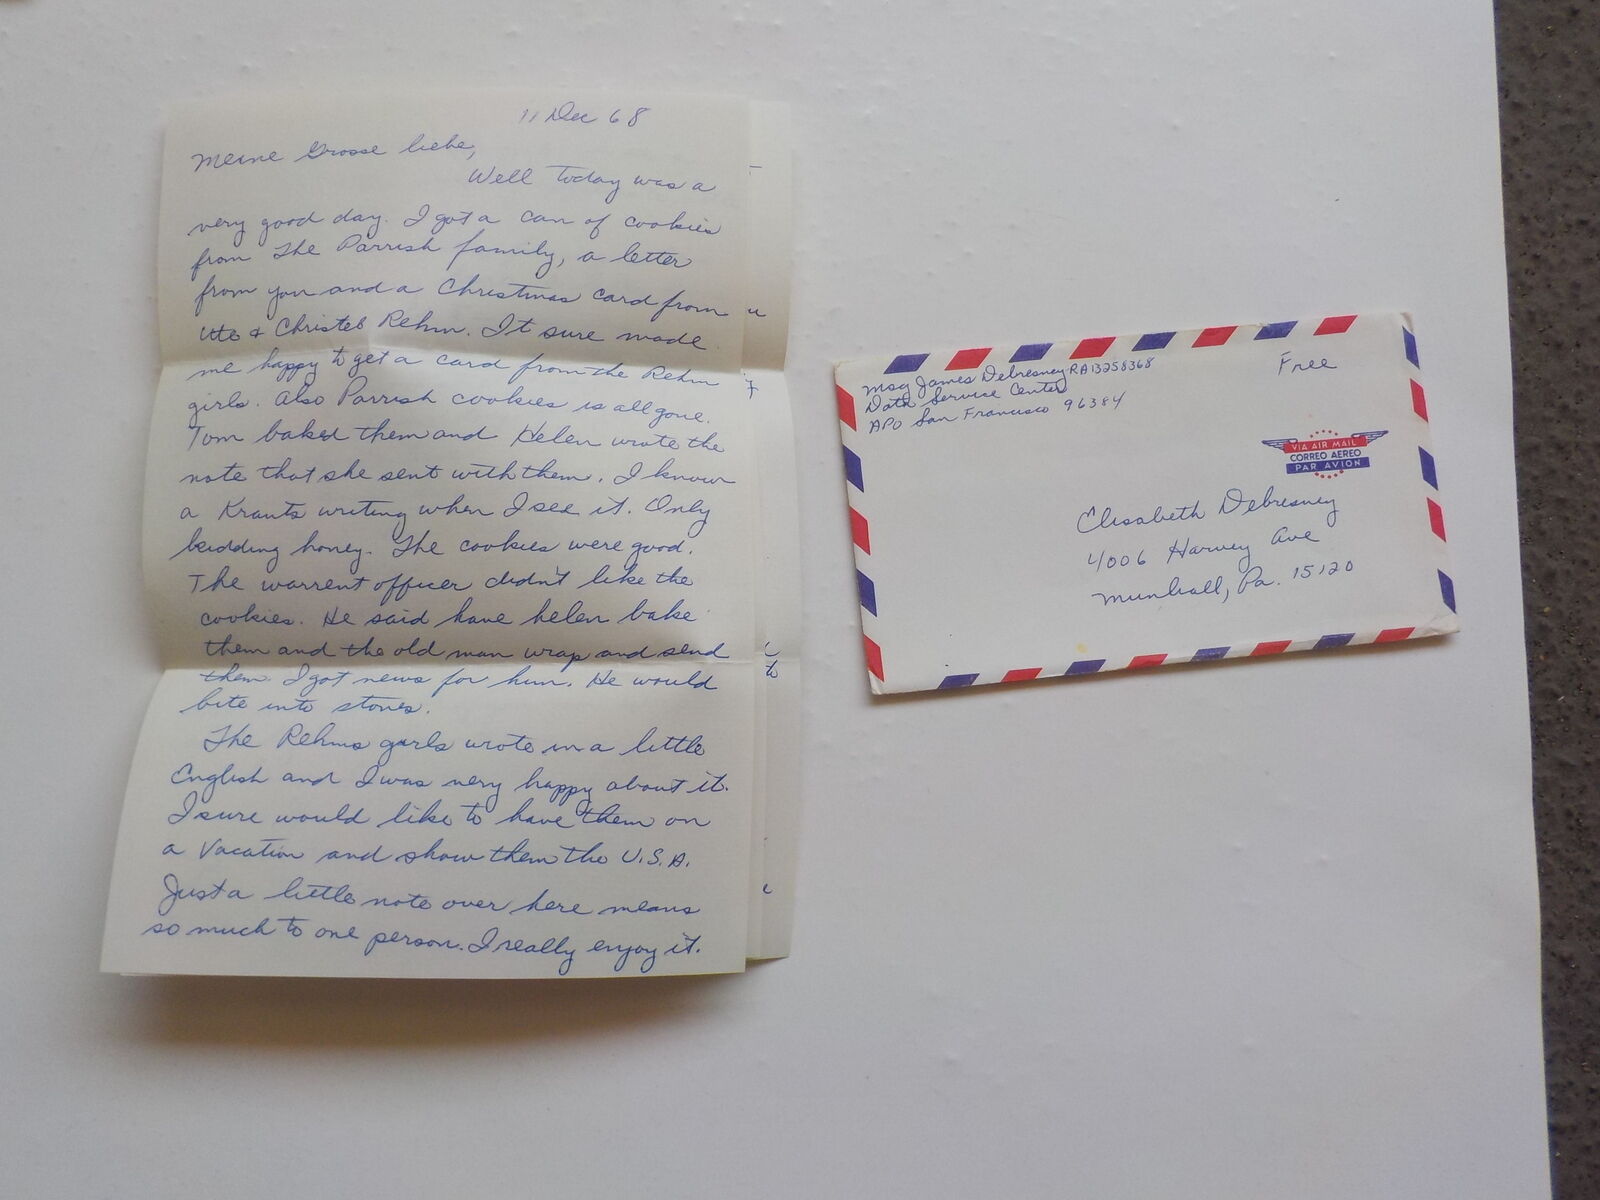 11 Dec 68
Meine Grosse liebe,
Well today was a
very good day. I got a can of cookies
from The Parrish family, a letter
from you and a Christmas card from
Ute & Christel Rehm. It sure made
me happy to get a card from the Rehm
girls. Also Parrish cookies is all gone.
Tom baked them and Helen wrote the
note that she sent with them. I know
a Krauts writing when I see it. Only
kidding honey. The cookies were good.
The warrent officer didn't like the
cookies. He said have helen bake
them and the old man wrap and send
them. I got news for him. He would
bite into stones.
The Rehms girls wrote in a little
English and I was very happy about it.
I sure would like to have them on
a vacation and show them the U.S.A.
Just a little note over here means
so much to one person. I really enjoy it.
Msg James Debresney RA13258368
Data Service Center
APO San Francisco 96384
Free
VIA AIR MAIL
CORREO AEREO
PAR AVION
Elisabeth Debresney
4006 Harvey Ave
Munhall, Pa. 15120